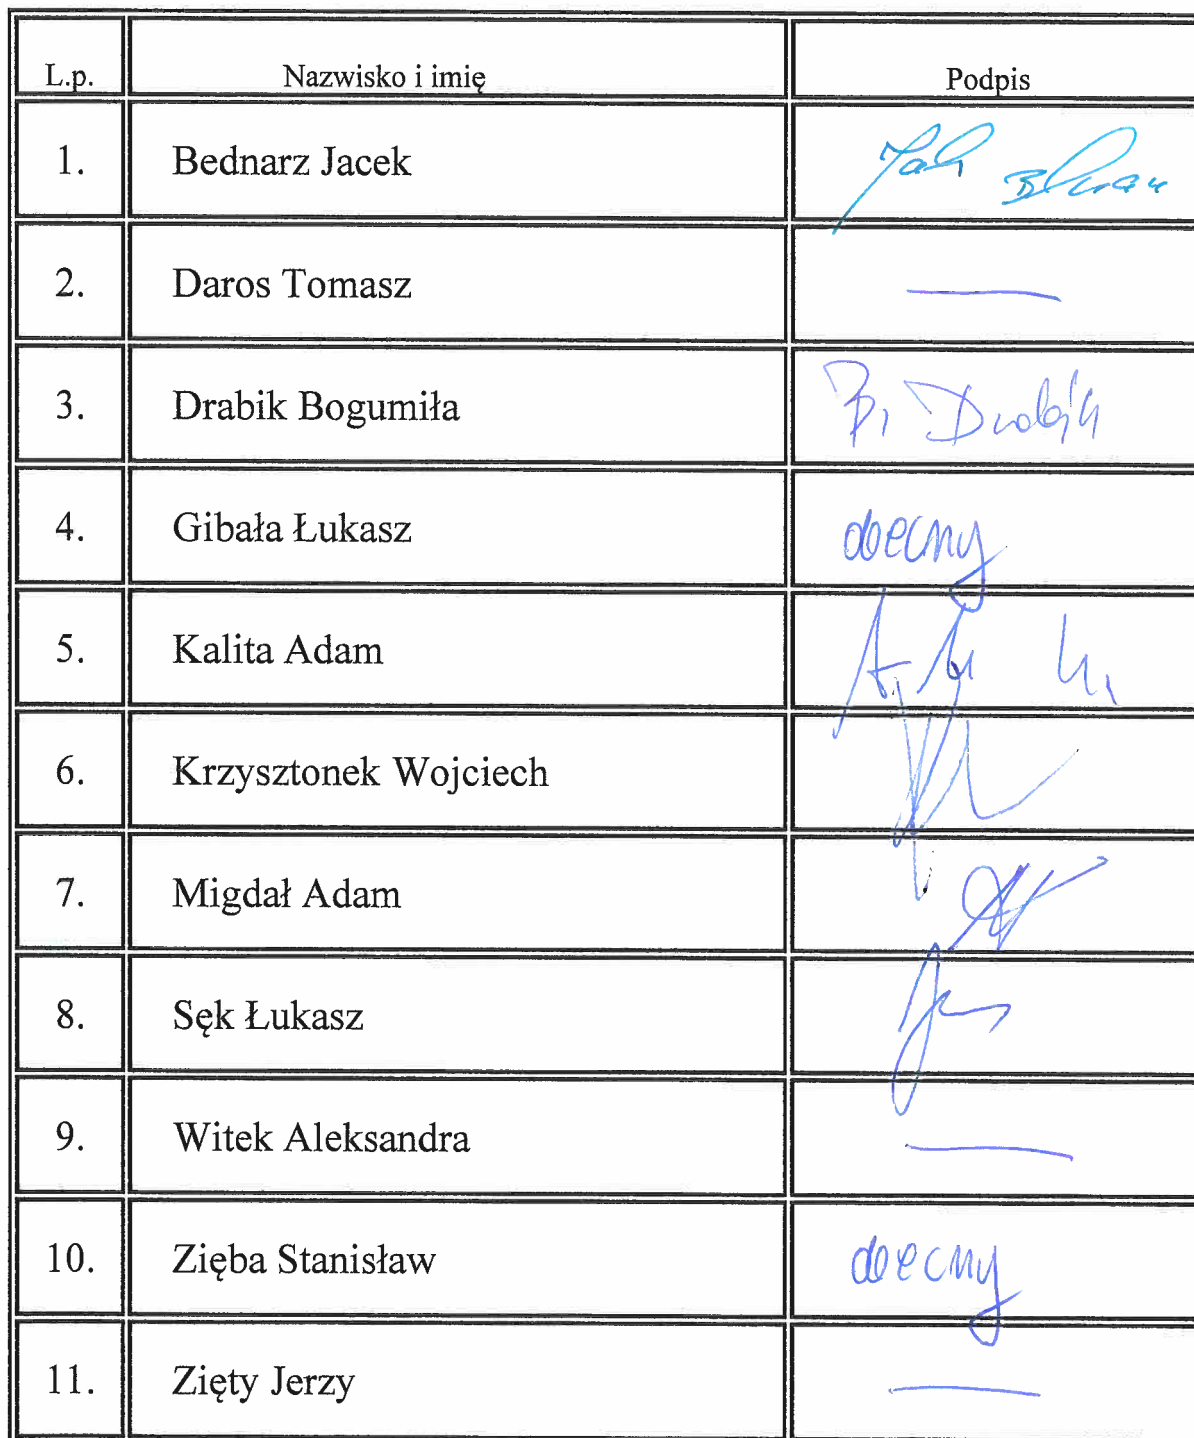 L.p. Nazwisko i imię Podpis
1. Bednarz Jacek
2. Daros Tomasz —
3. Drabik Bogumiła B. Drabik
4. Gibała Łukasz obecny
5. Kalita Adam
6. Krzysztonek Wojciech
7. Migdał Adam
8. Sęk Łukasz
9. Witek Aleksandra —
10. Zięba Stanisław obecny
11. Zięty Jerzy —